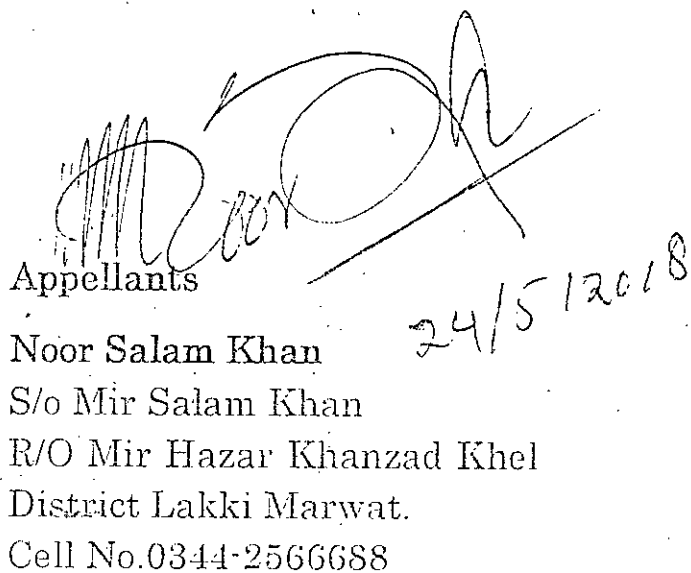 Noor
Appellants
24/5/2018
Noor Salam Khan
S/o Mir Salam Khan
R/O Mir Hazar Khanzad Khel
District Lakki Marwat.
Cell No.0344-2566688